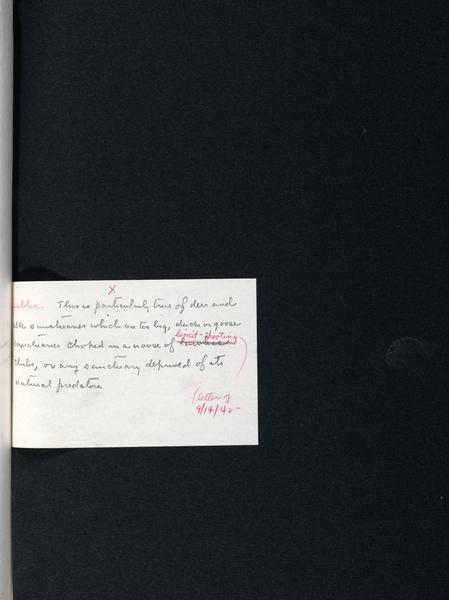 X
public. This is particularly true of deer and
elk sanctuaries which are too big, duck or goose
limit-shooting
sanctuaries choked in a noose of
clubs, or any sanctuary deprived of its
natural predators
(letter of
9/14/42-